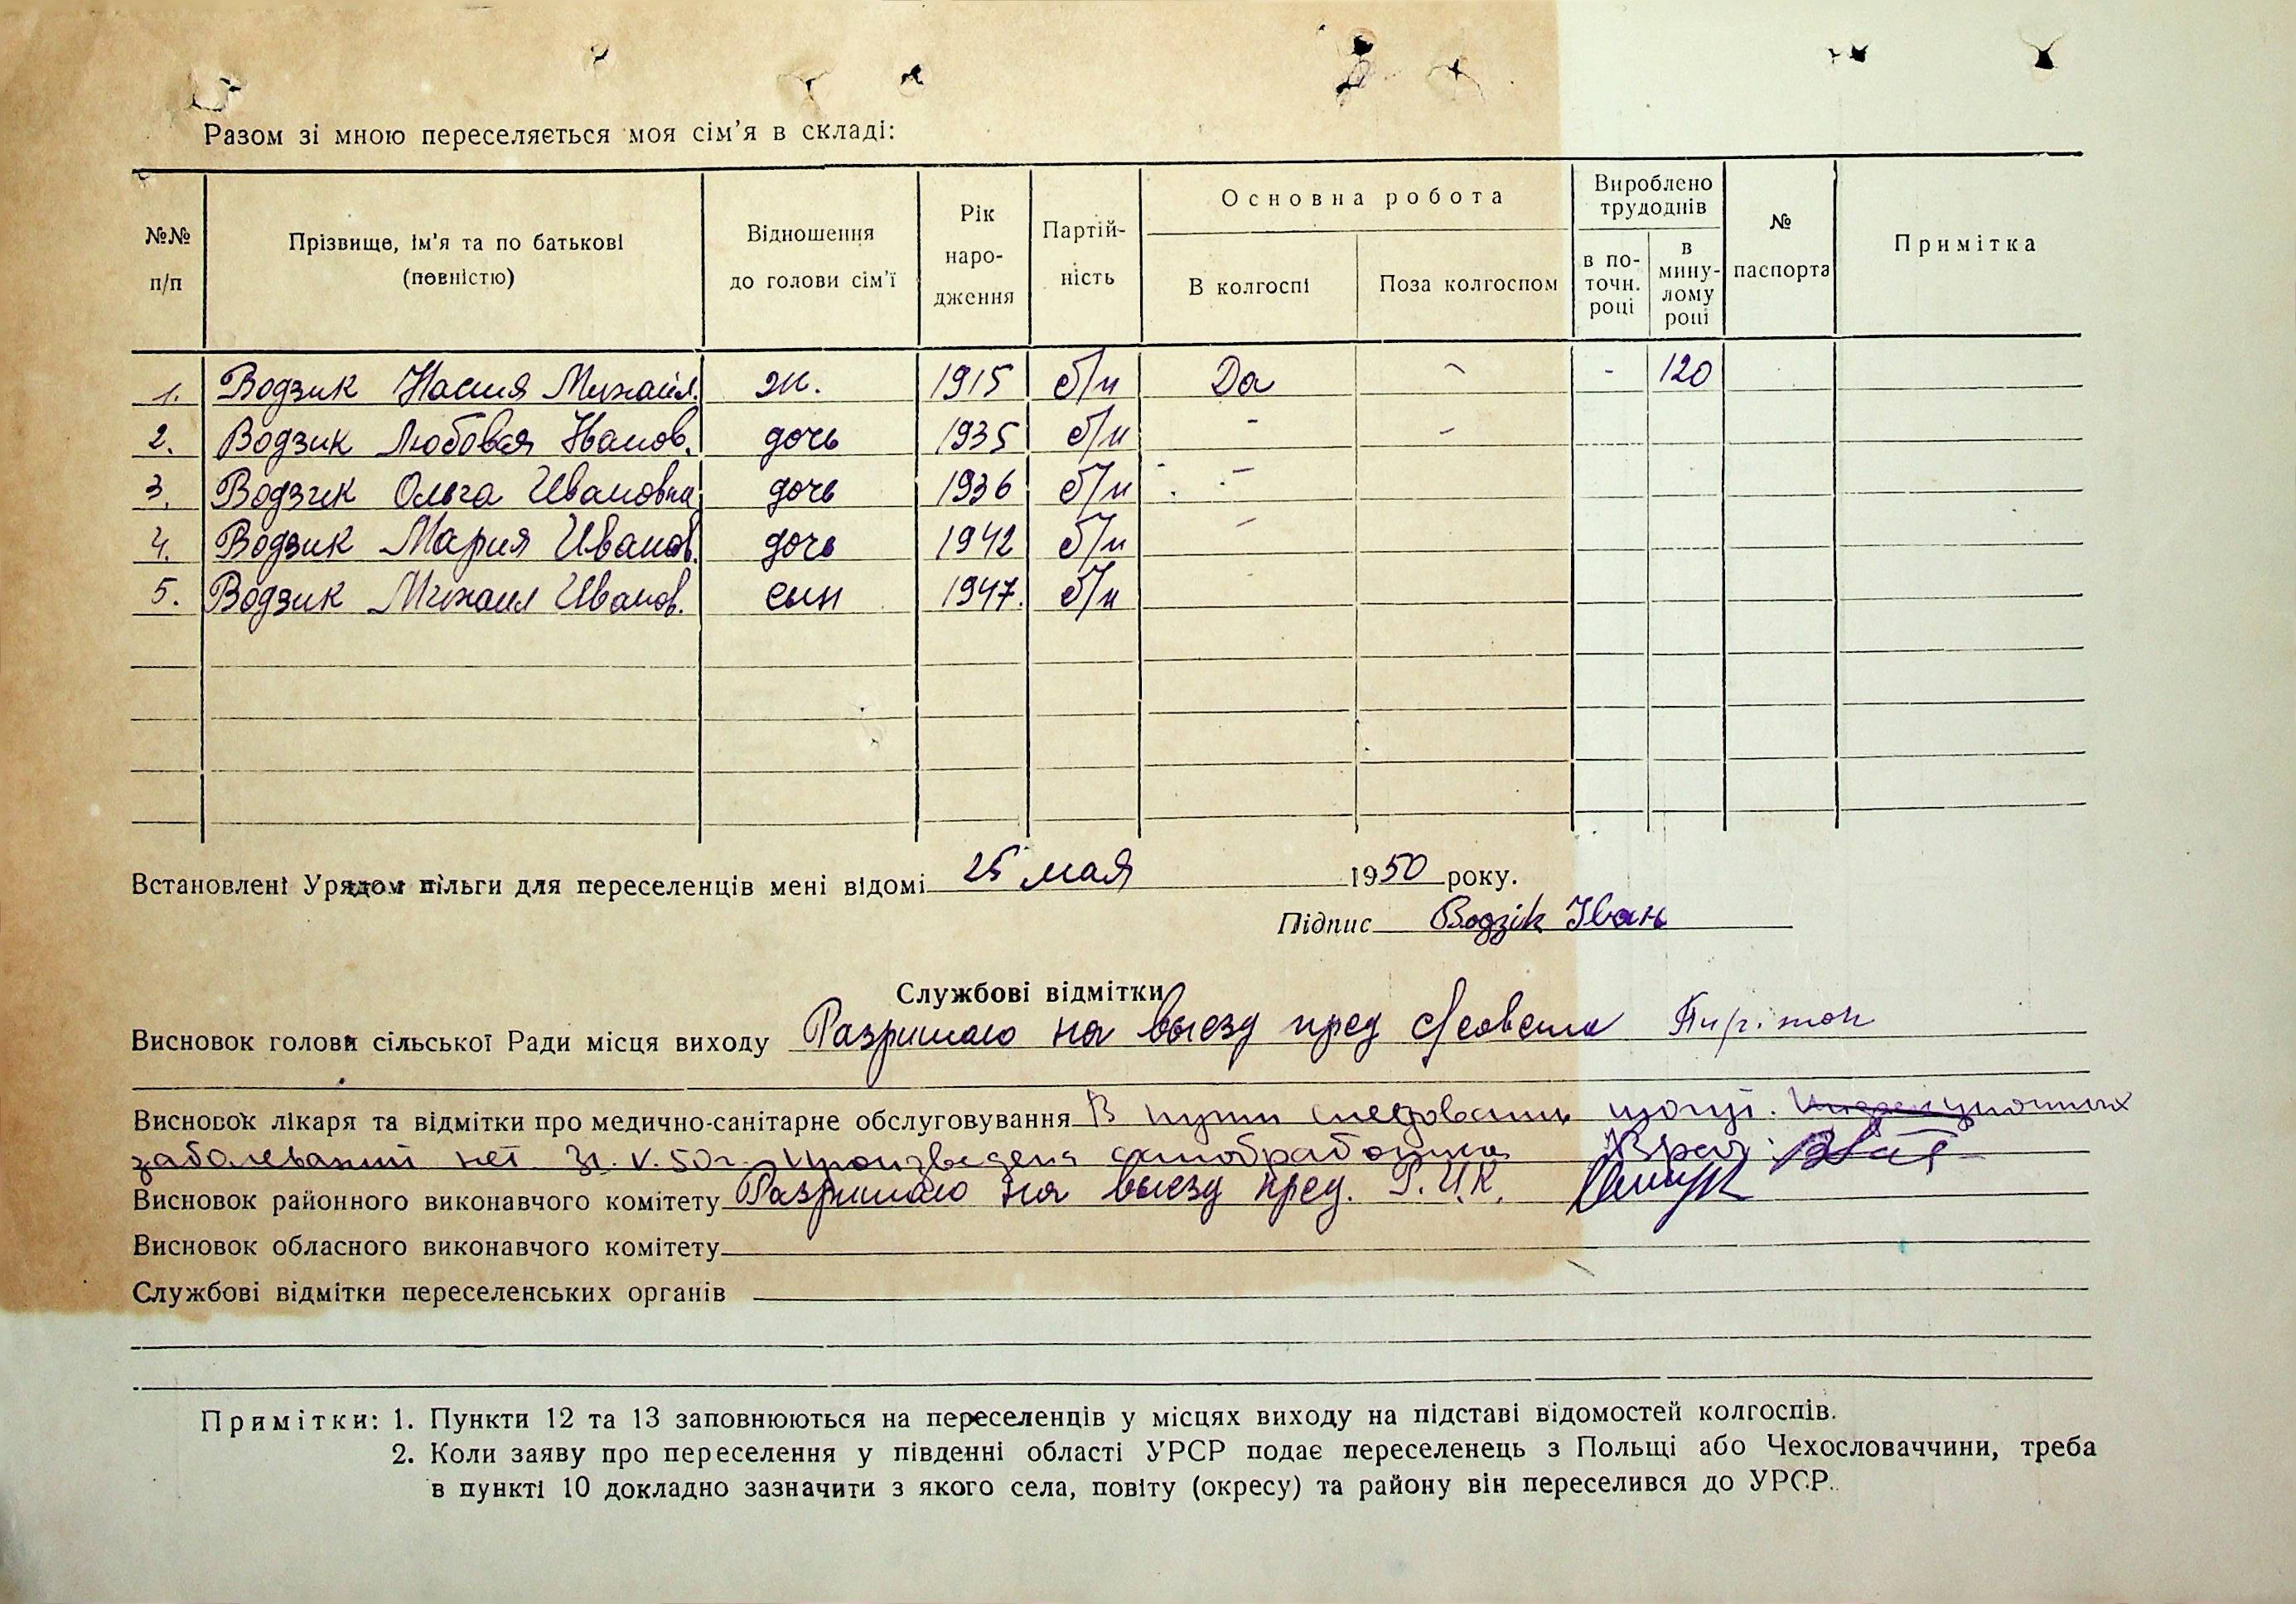 Разом зі мною переселяється моя сім'я в складі:
№№ п/п
Прізвище, ім'я та по батькові (повністю)
Відношення до голови сім'ї
Рік народження
Партійність
Основна робота
В колгоспі
Поза колгоспом
Вироблено трудоднів
в поточн. році
в минулому році
№ паспорта
Примітка
1. Водзик Настя Михайл. ж. 1915 б/п Да - - 120
2. Водзик Любовья Иванов. дочь 1935 б/п - -
3. Водзик Ольга Ивановна дочь 1936 б/п -
4. Водзик Мария Иванов. дочь 1942 б/п -
5. Водзик Михаил Иванов. сын 1947. б/п
Встановлені Урядом пільги для переселенців мені відомі 25 мая 1950 року.
Підпис Водзік Іван
Службові відмітки
Висновок голови сільської Ради місця виходу Разришаю на выезд пред с/совета
Висновок лікаря та відмітки про медично-санітарне обслуговування В пути следования Инфекционных
заболеваний нет 31.V.50г. Произведена санобработка Врач:
Висновок районного виконавчого комітету Разришаю на выезд пред. Р.И.К.
Висновок обласного виконавчого комітету
Службові відмітки переселенських органів
Примітки: 1. Пункти 12 та 13 заповнюються на переселенців у місцях виходу на підставі відомостей колгоспів.
2. Коли заяву про переселення у південні області УРСР подає переселенець з Польщі або Чехословаччини, треба
в пункті 10 докладно зазначити з якого села, повіту (окресу) та району він переселився до УРСР.